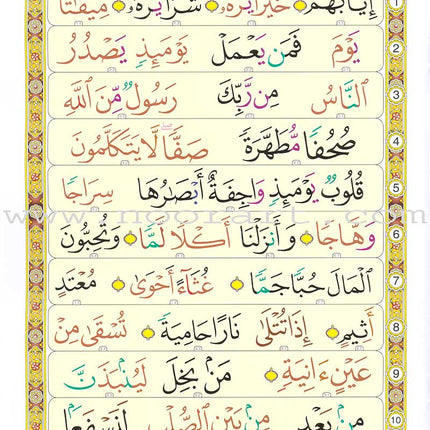 إِيَابَهُمْ خَيْرًا يَرَهُ شَرًّا يَرَهُ مِيقَاتًا 1
يَوْمَ فَمَن يَعْمَلْ يَوْمَئِذٍ يَصْدُرُ 2
النَّاسُ مِن رَّبِّكَ رَسُولٌ مِّنَ اللَّهِ 3
صُحُفًا مُّطَهَّرَةً صَفًّا لَّا يَتَكَلَّمُونَ 4
قُلُوبٌ يَوْمَئِذٍ وَاجِفَةٌ أَبْصَارُهَا سِرَاجًا 5
وَهَّاجًا وَأَنزَلْنَا أَكْلًا لَّمًّا وَتُحِبُّونَ 6
الْمَالَ حُبًّا جَمًّا غُثَاءً أَحْوَى مُعْتَدٍ 7
أَثِيمٍ إِذَا تُتْلَى نَارًا حَامِيَةً تُسْقَى مِنْ 8
عَيْنٍ ءَانِيَةٍ مَن بَخِلَ لَيُنبَذَنَّ 9
مِن بَعْدِ مِن بَيْنِ الصُّلْبِ لَنَسْفَعًا 10
www.noorart.com